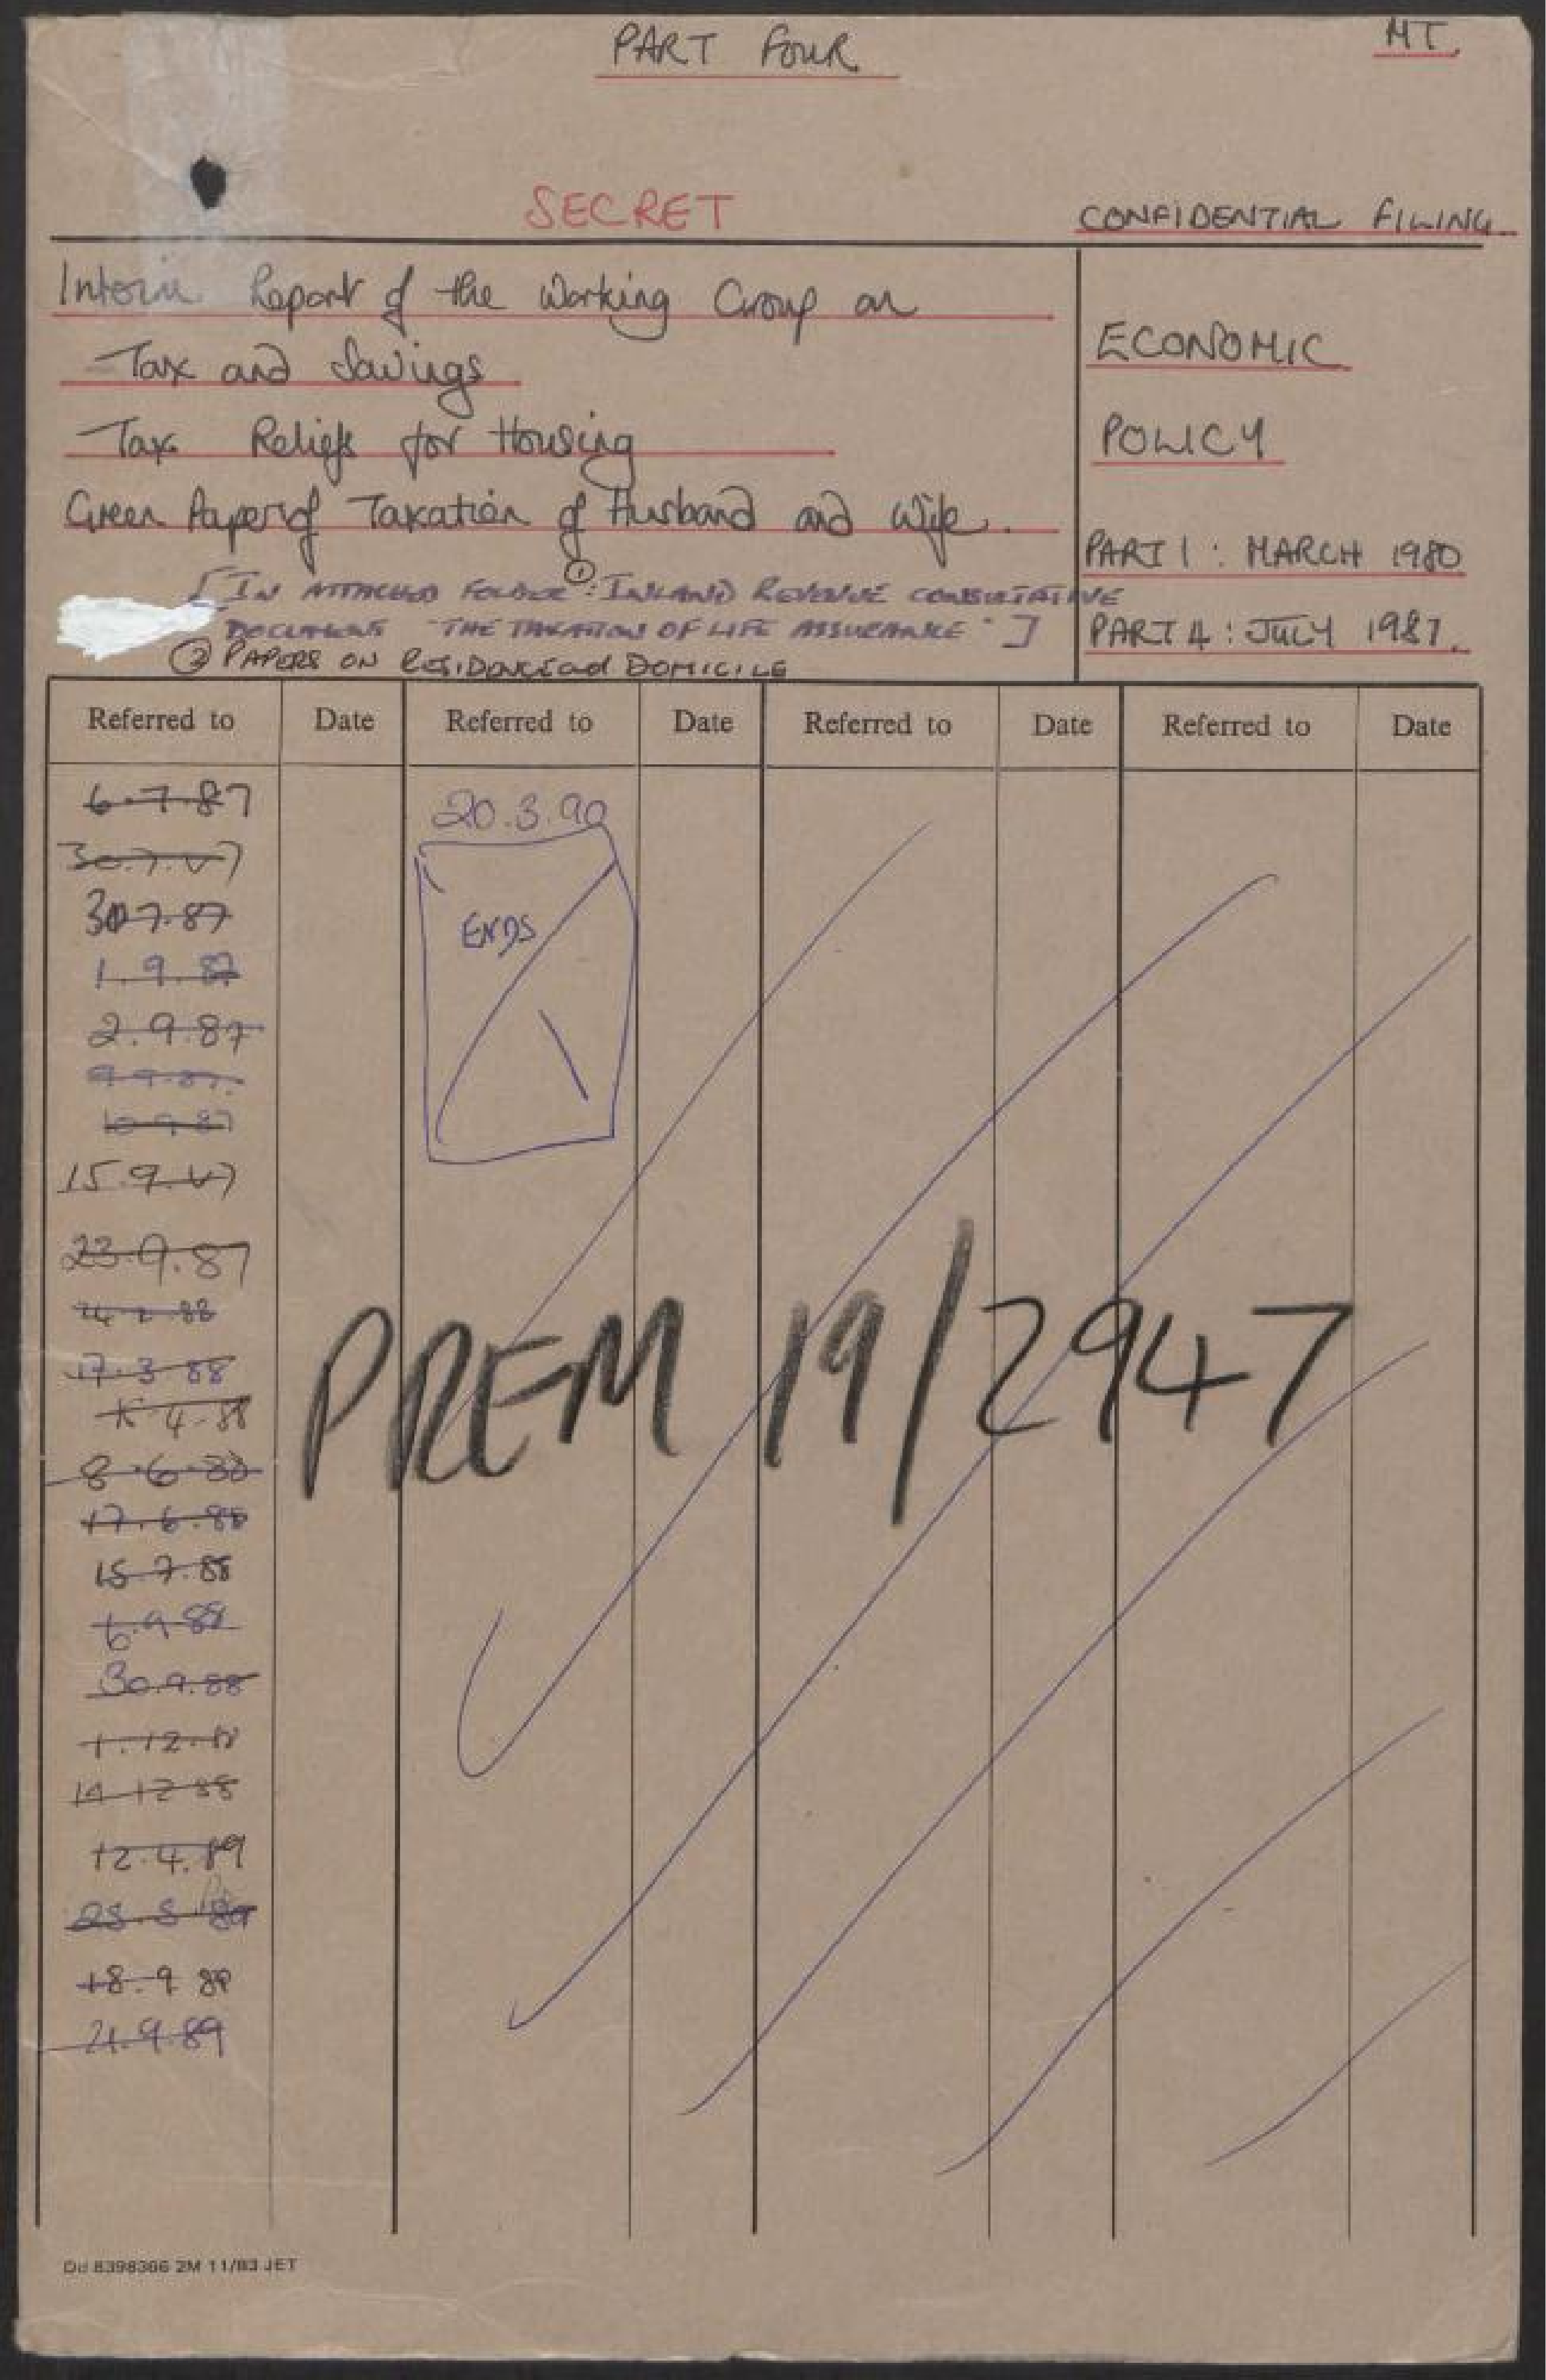 PART FOUR
MT.
SECRET
CONFIDENTIAL FILING
Interim Report of the Working Group on
Tax and Savings
Tax Reliefs for Housing
Green Paper of Taxation of Husband and Wife.
[IN ATTACHED FOLDER ①: INLAND REVENUE CONSULTATIVE
DOCUMENT "THE TAXATION OF LIFE ASSURANCE"]
② PAPERS ON RESIDENCE and DOMICILE
ECONOMIC
POLICY
PART 1: MARCH 1980
PART 4: JULY 1987.
Referred to Date Referred to Date Referred to Date Referred to Date
6.7.87
30.7.87
30.7.87
1.9.87
2.9.87
9.9.87.
10.9.87
15.9.87
23.9.87
17.3.88
4.88
8.6.88
17.6.88
15.7.88
6.9.88
30.9.88
1.12.88
14.12.88
12.4.89
18.9.89
21.9.89
20.3.90
ENDS
PREM 19/2947
Dd 8398366 2M 11/83 JET